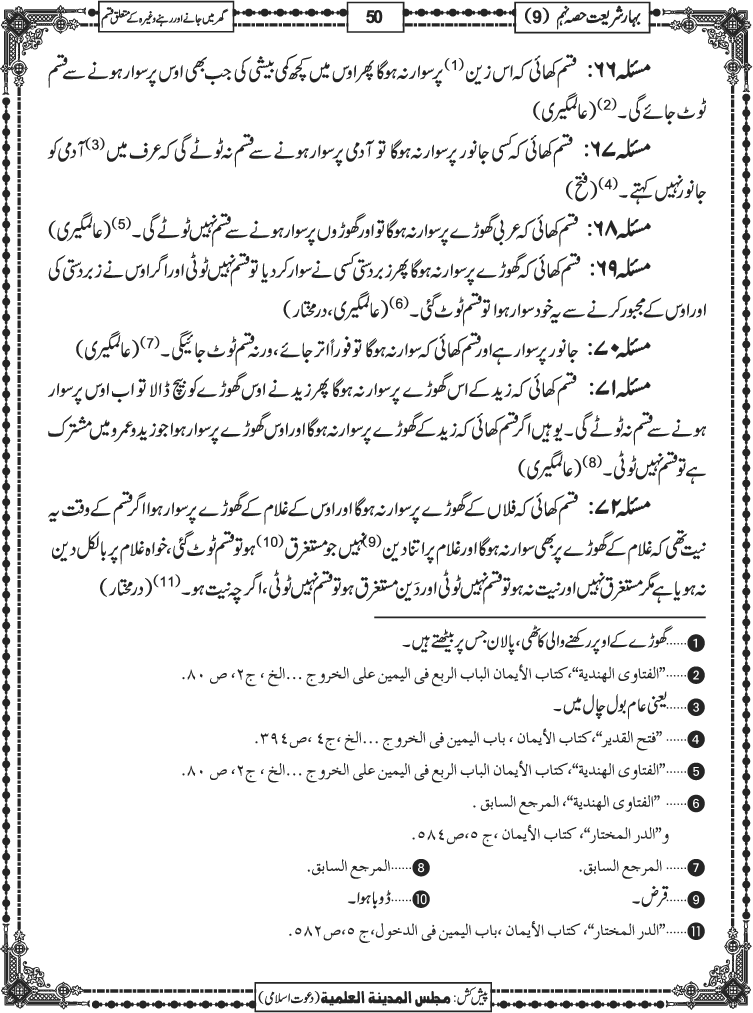 بہار شریعت حصہ نہم (9)
50
گھر میں جانے اور رہنے وغیرہ کے متعلق قسم
مسئلہ ۶۶: قسم کھائی کہ اس زین(1) پر سوار نہ ہوگا پھر اوس میں کچھ کمی بیشی کی جب بھی اوس پر سوار ہونے سے قسم
ٹوٹ جائے گی۔(2) (عالمگیری)
مسئلہ ۶۷: قسم کھائی کہ کسی جانور پر سوار نہ ہوگا تو آدمی پر سوار ہونے سے قسم نہ ٹوٹے گی کہ عرف میں(3) آدمی کو
جانور نہیں کہتے۔(4) (فتح)
مسئلہ ۶۸: قسم کھائی کہ عربی گھوڑے پر سوار نہ ہوگا تو اور گھوڑوں پر سوار ہونے سے قسم نہیں ٹوٹے گی۔(5) (عالمگیری)
مسئلہ ۶۹: قسم کھائی کہ گھوڑے پر سوار نہ ہوگا پھر زبردستی کسی نے سوار کر دیا تو قسم نہیں ٹوٹی اور اگر اوس نے زبردستی کی
اور اوس کے مجبور کرنے سے یہ خود سوار ہوا تو قسم ٹوٹ گئی۔(6) (عالمگیری، درمختار)
مسئلہ ۷۰: جانور پر سوار ہے اور قسم کھائی کہ سوار نہ ہوگا تو فوراً اتر جائے، ورنہ قسم ٹوٹ جائیگی۔(7) (عالمگیری)
مسئلہ ۷۱: قسم کھائی کہ زید کے اس گھوڑے پر سوار نہ ہوگا پھر زید نے اوس گھوڑے کو بیچ ڈالا تو اب اوس پر سوار
ہونے سے قسم نہ ٹوٹے گی۔ یوہیں اگر قسم کھائی کہ زید کے گھوڑے پر سوار نہ ہوگا اور اوس گھوڑے پر سوار ہوا جو زید و عمرو میں مشترک
ہے تو قسم نہیں ٹوٹی۔(8) (عالمگیری)
مسئلہ ۷۲: قسم کھائی کہ فلاں کے گھوڑے پر سوار نہ ہوگا اور اوس کے غلام کے گھوڑے پر سوار ہوا اگر قسم کے وقت یہ
نیت تھی کہ غلام کے گھوڑے پر بھی سوار نہ ہوگا اور غلام پر اتنا دین(9) نہیں جو مستغرق(10) ہو تو قسم ٹوٹ گئی، خواہ غلام پر بالکل دین
نہ ہو یا ہے مگر مستغرق نہیں اور نیت نہ ہو تو قسم نہیں ٹوٹی اور دَین مستغرق ہو تو قسم نہیں ٹوٹی، اگرچہ نیت ہو۔(11) (درمختار)
1......گھوڑے کے اوپر رکھنے والی کاٹھی، پالان جس پر بیٹھتے ہیں۔
2......"الفتاوى الهندية"، كتاب الأيمان الباب الربع فى اليمين على الخروج ...الخ ، ج٢، ص ٨٠.
3......یعنی عام بول چال میں۔
4...... "فتح القدير"، كتاب الأيمان ، باب اليمين فى الخروج ...الخ ،ج٤ ،ص٣٩٤.
5......"الفتاوى الهندية"، كتاب الأيمان الباب الربع فى اليمين على الخروج ...الخ ، ج٢، ص ٨٠.
6...... "الفتاوى الهندية"، المرجع السابق .
و"الدر المختار"، كتاب الأيمان ،ج ٥،ص٥٨٤.
7...... المرجع السابق. 8......المرجع السابق.
9......قرض۔ 10......ڈوبا ہوا۔
11......"الدر المختار"، كتاب الأيمان ،باب اليمين فى الدخول،ج ٥،ص٥٨٢.
پیش کش: مجلس المدينة العلمية (دعوت اسلامی)